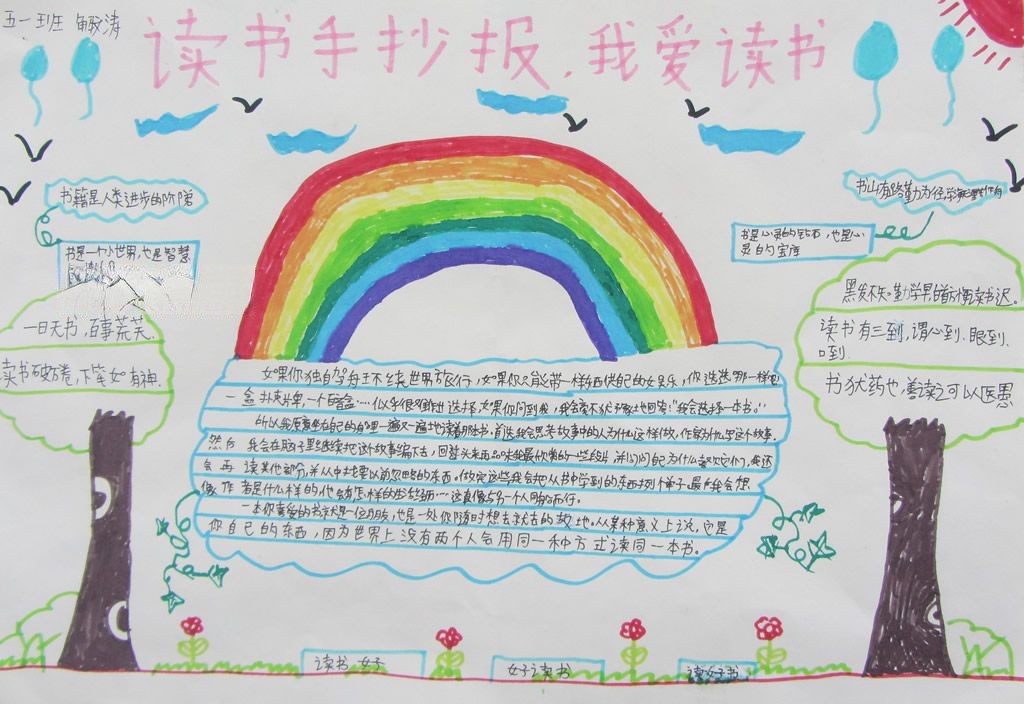 五一班
读书手抄报，我爱读书
书籍是人类进步的阶梯
书是一个小世界，也是智慧
书山有路勤为径学海
书是心灵的钻石，也是心
灵的宝库
一日无书，百事荒芜.
读书破万卷，下笔如有神.
黑发不知勤学早白首方悔读书迟。
读书有三到，谓心到、眼到、
口到.
书犹药也，善读之可以医愚
如果你独自驾舟环绕世界旅行，如果你只能带一样东西供自己的娱乐，你选选哪一样
一盒扑克牌，一个百宝盒…似乎很难作出选择，如果你问到我，我会毫不犹豫地回答：“我会选择一本书。”
所以我愿意坐在自己的角里一遍又一遍地读着那本书。首选我会思考故事中的人为什么这样做，作家为什么写这个故事.
然后我会在脑子里继续把这个故事编下去，回过头来品味我最欣赏的一些段，并问问自己为什么喜欢它们，我还
会再读其他部分，并从中找要以前忽略的东西。做完这些，我会把从书中学到的东西列个单子。最后我会想
像作者是什么样的，他会有怎样的生活经历…这真像与另一个人同舟而行。
一本你喜爱的书就是一位朋友，也是一处你随时想去就去的故地。从某种意义上说，它是
你自己的东西，因为世界上没有两个人会用同一种方式读同一本书。
读书 女子
女子读书
读好书